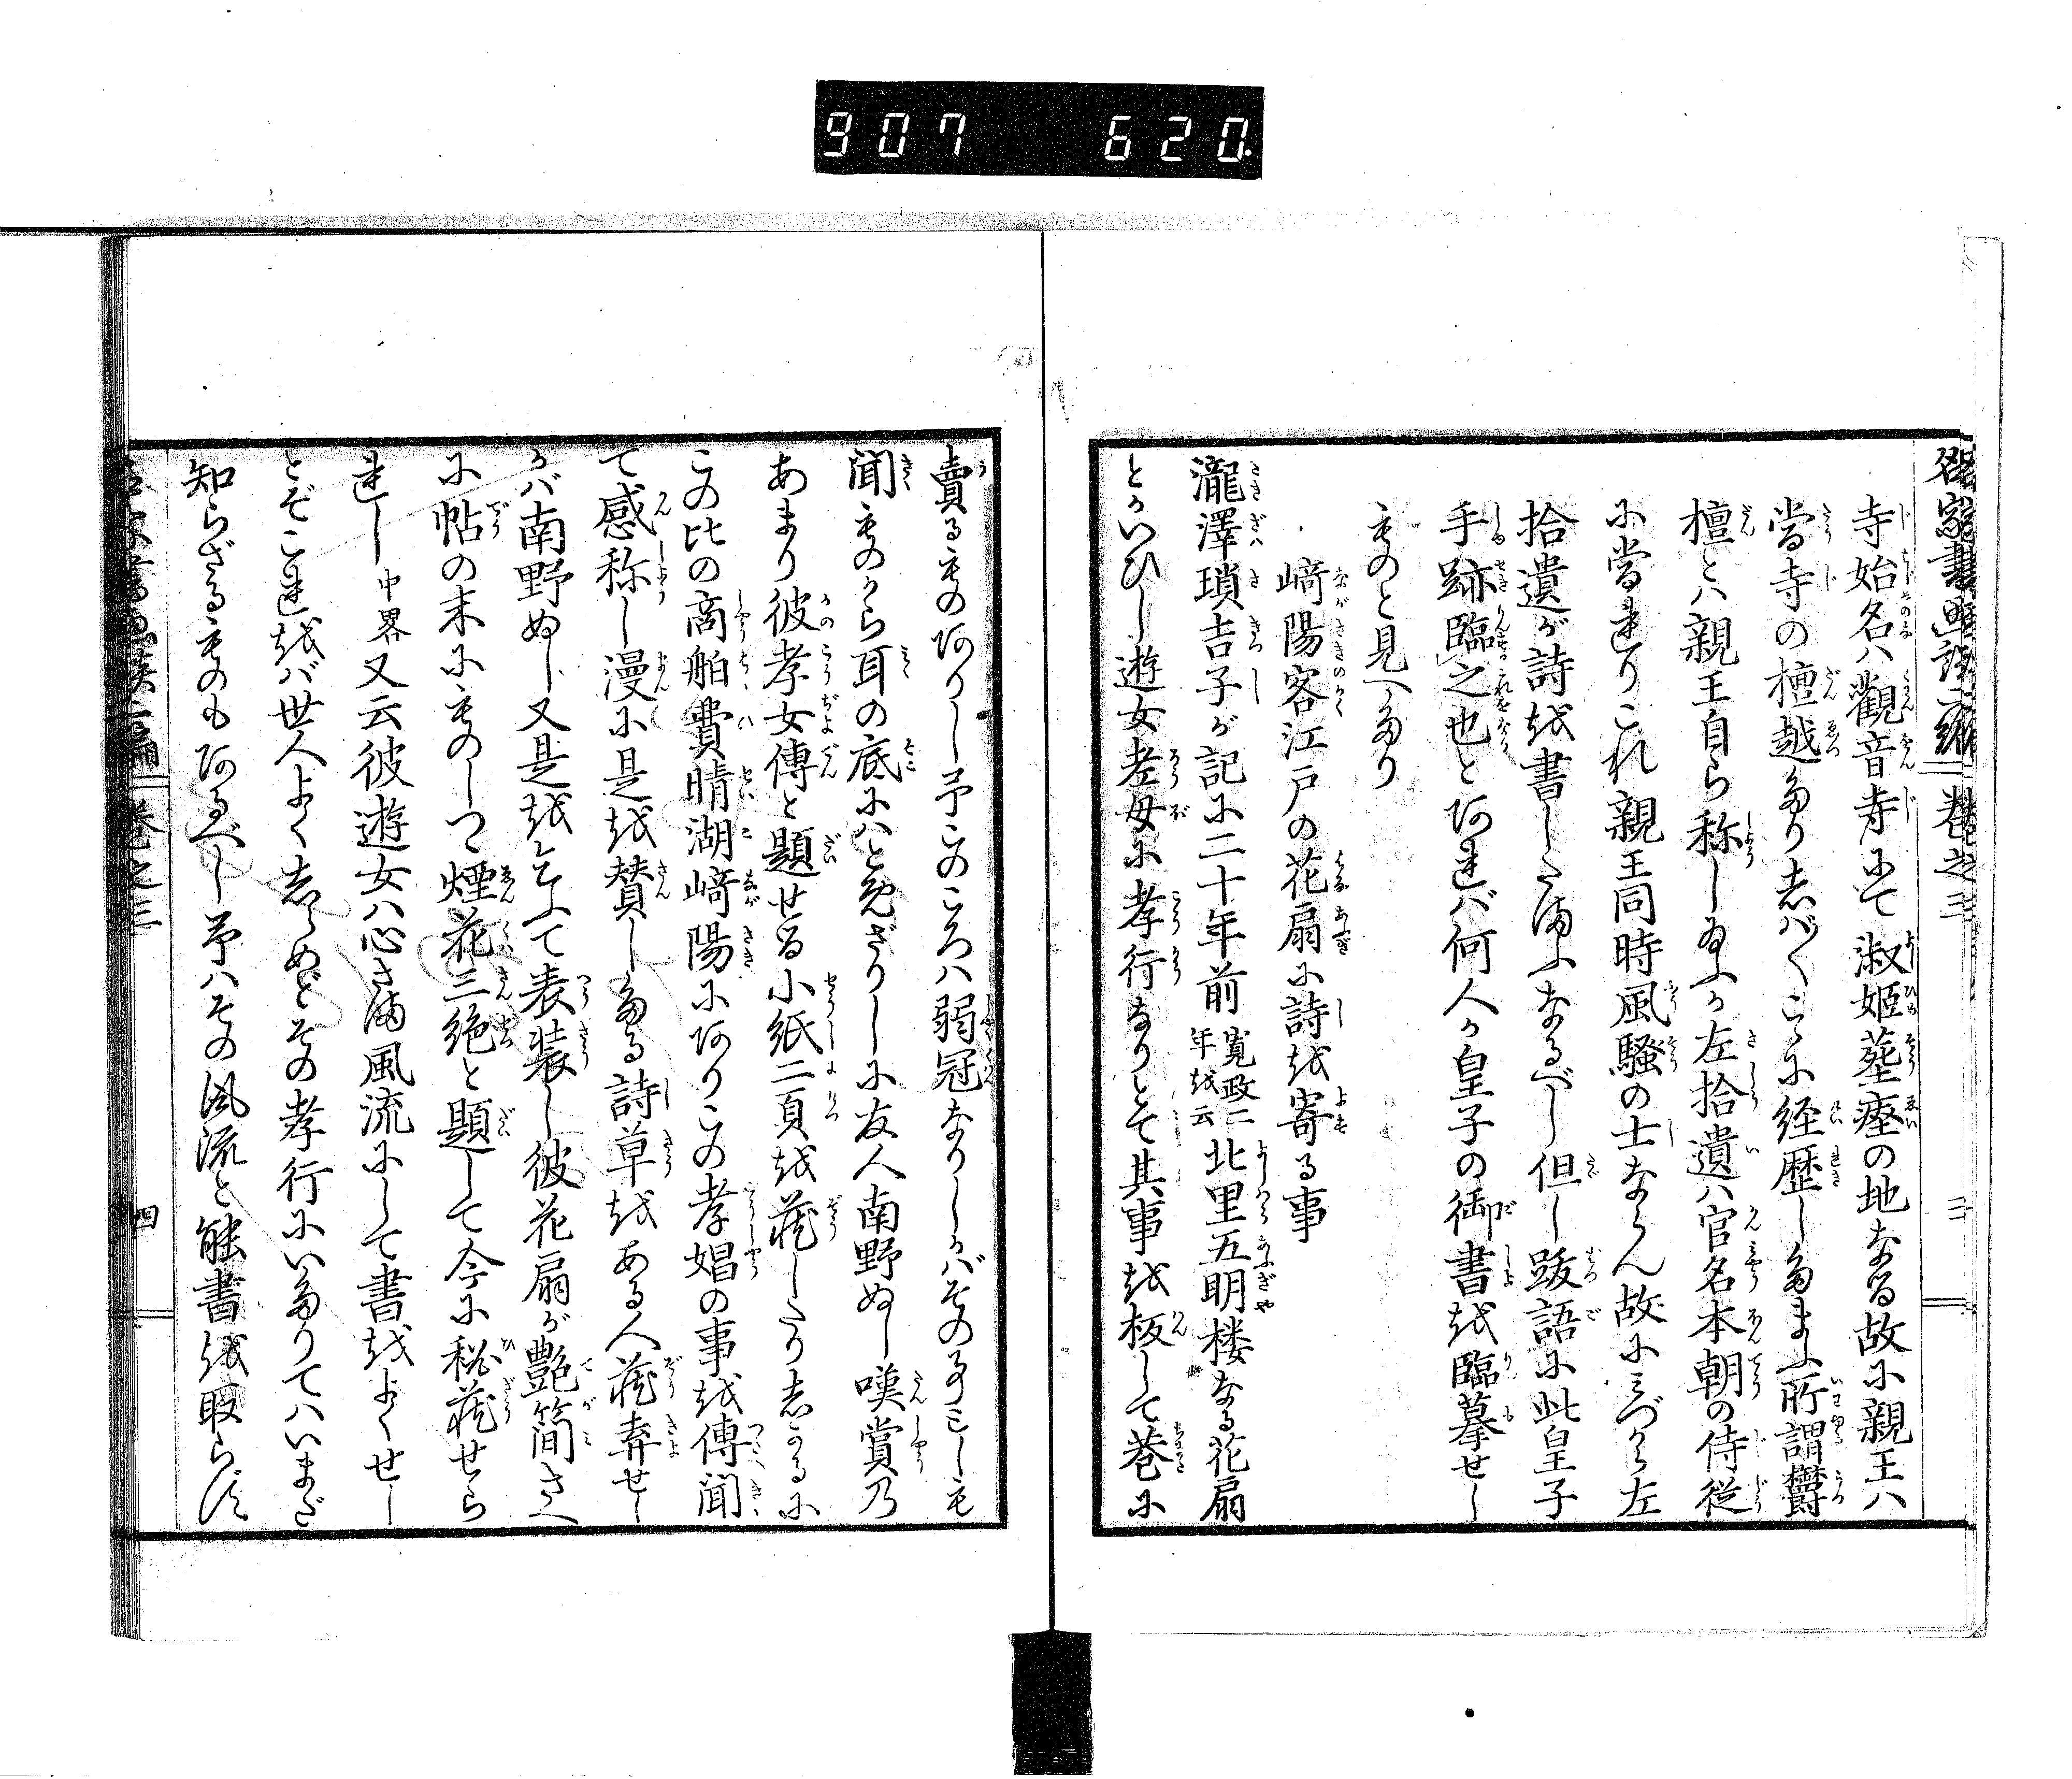 907 620
寺始名ハ觀音寺にて淑姫塟瘞の地なる故に親王ハ
當寺の檀越たり志ばくこゝに経歴したまふ所謂欝
檀とハ親王自ら称し玉ふか左拾遺ハ官名本朝の侍従
に當れりこれ親王同時風騒の士ならん故にみづから左
拾遺が詩を書したまふなるべし但し跋語に此皇子
手跡臨之也とあれバ何人か皇子の御書を臨摹せし
ものと見へたり
﨑陽客江戸の花扇に詩を寄る事
瀧澤瑣吉子が記に二十年前
寛政二
年を云
北里五明楼なる花扇
とかいひし遊女老母に孝行なりとて其事を板して巷に
賣るものありし予このころハ弱冠なりしがバその事ミしも
聞ものから耳の底にハとめざりしに友人南野ぬし嘆賞乃
あまり彼孝女傳と題せる小紙二頁を蔵したり志かるに
この比の商舶費晴湖﨑陽にありこの孝娼の事を傳聞
て感称し漫に是を賛したる詩草をある人蔵弆せし
かバ南野ぬし又是を乞ふて表装し彼花扇が艶簡さへ
に帖の末にものしつ煙花三絶と題して今に秘蔵せら
れし
中畧
又云彼遊女ハ心さま風流にして書をよくせし
とぞこれをバ世人よく志らめどその孝行にいたりてハいまだ
知らざるものもあるべし予ハその風流と能書を取らず
巻之三
四